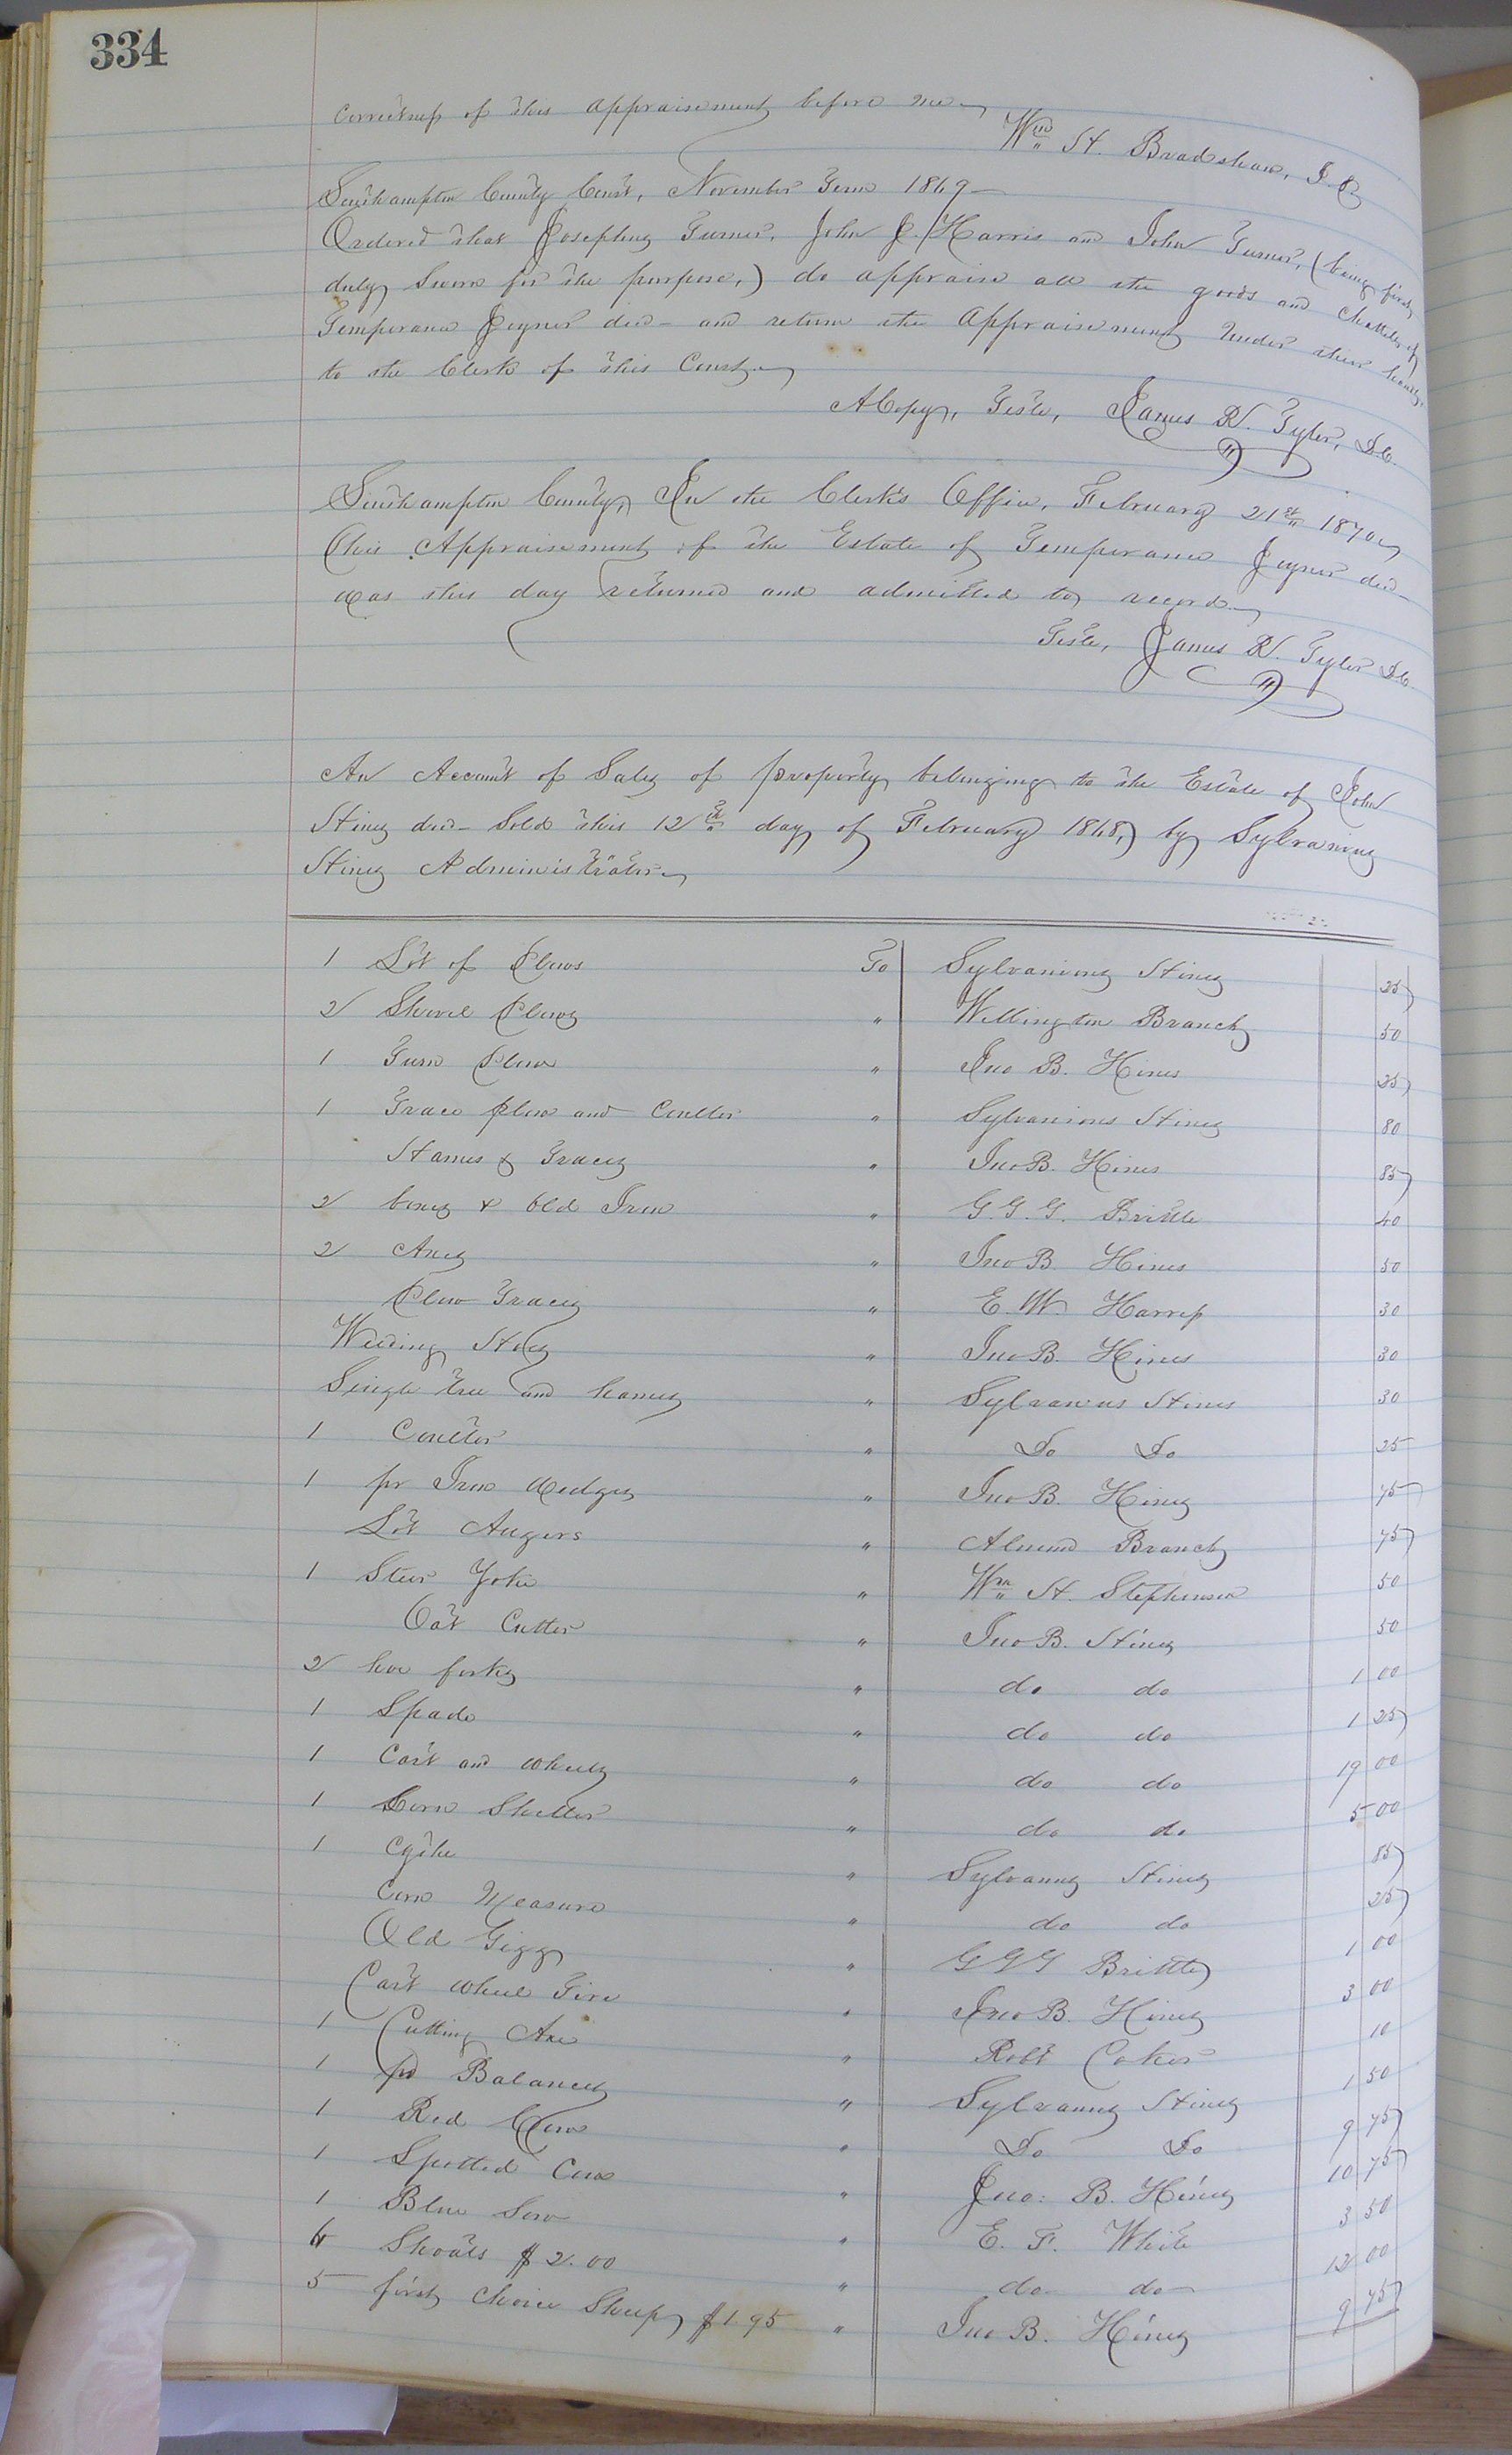 334
correctness of this appraisement before me
Wm H. Bradshaw, J.P.
Southampton County Court, November Term 1869
Ordered that Josephus Turner, John J. Harris and John Turner, (being first
duly sworn for the purpose,) do appraise all the goods and chattels of
Temperance Joyner decd and return the Appraisement under their hands
to the Clerk of this Court.
A Copy, Teste, James R. Tyler, D.C.
Southampton County, In the Clerk's Office, February 21st 1870
This Appraisement of the Estate of Temperance Joyner decd
was this day returned and admitted to record.
Teste, James R. Tyler D.C.
An Account of Sales of property belonging to the Estate of John
Hines decd Sold this 12th day of February 1868, by Sylvanius
Hines Administrator
1 Lot of Plows To Sylvanious Hines 25
2 Shovel Plows " Wellington Branch 50
1 Turn Plow " Jno B. Hines 25
1 Trace plow and Coulter " Sylvanious Hines 80
Hames & Traces " Jno B. Hines 85
2 & Old Iron " G.G.G. Brittle 40
2 Axes " Jno B. Hines 50
Plow Traces " E. W. Harris 30
Weeding Hoes " Jno B. Hines 30
Single tree and hames " Sylvanus Hines 30
1 Coulter " Do Do 25
1 pr Iron wedges " Jno B. Hines 75
Lot Augers " Branch 75
1 Steer Yoke " Wm H. Stephenson 50
Oat Cutter " Jno B. Hines 50
2 hoe forks " do do 1 00
1 Spade " do do 1 25
1 Cart and wheels " do do 19 00
1 Corn Sheller " do do 5 00
1 Cythe " Sylvanus Hines 85
Corn Measure " do do 25
Old Gigg " G G G Brittle 1 00
Cart wheel Tire " Jno B. Hines 3 00
1 Cutting Axe " Robt Coker 10
1 pr Balances " Sylvanus Hines 1 50
1 Red Cow " Do Do 9 75
1 Spotted Cow " Jno: B. Hines 10 75
1 Blue Sow " E. F. White 3 50
6 Shoats $ 2.00 " do do 12 00
5 first choice Sheep $1.95 " Jno B. Hines 9 75